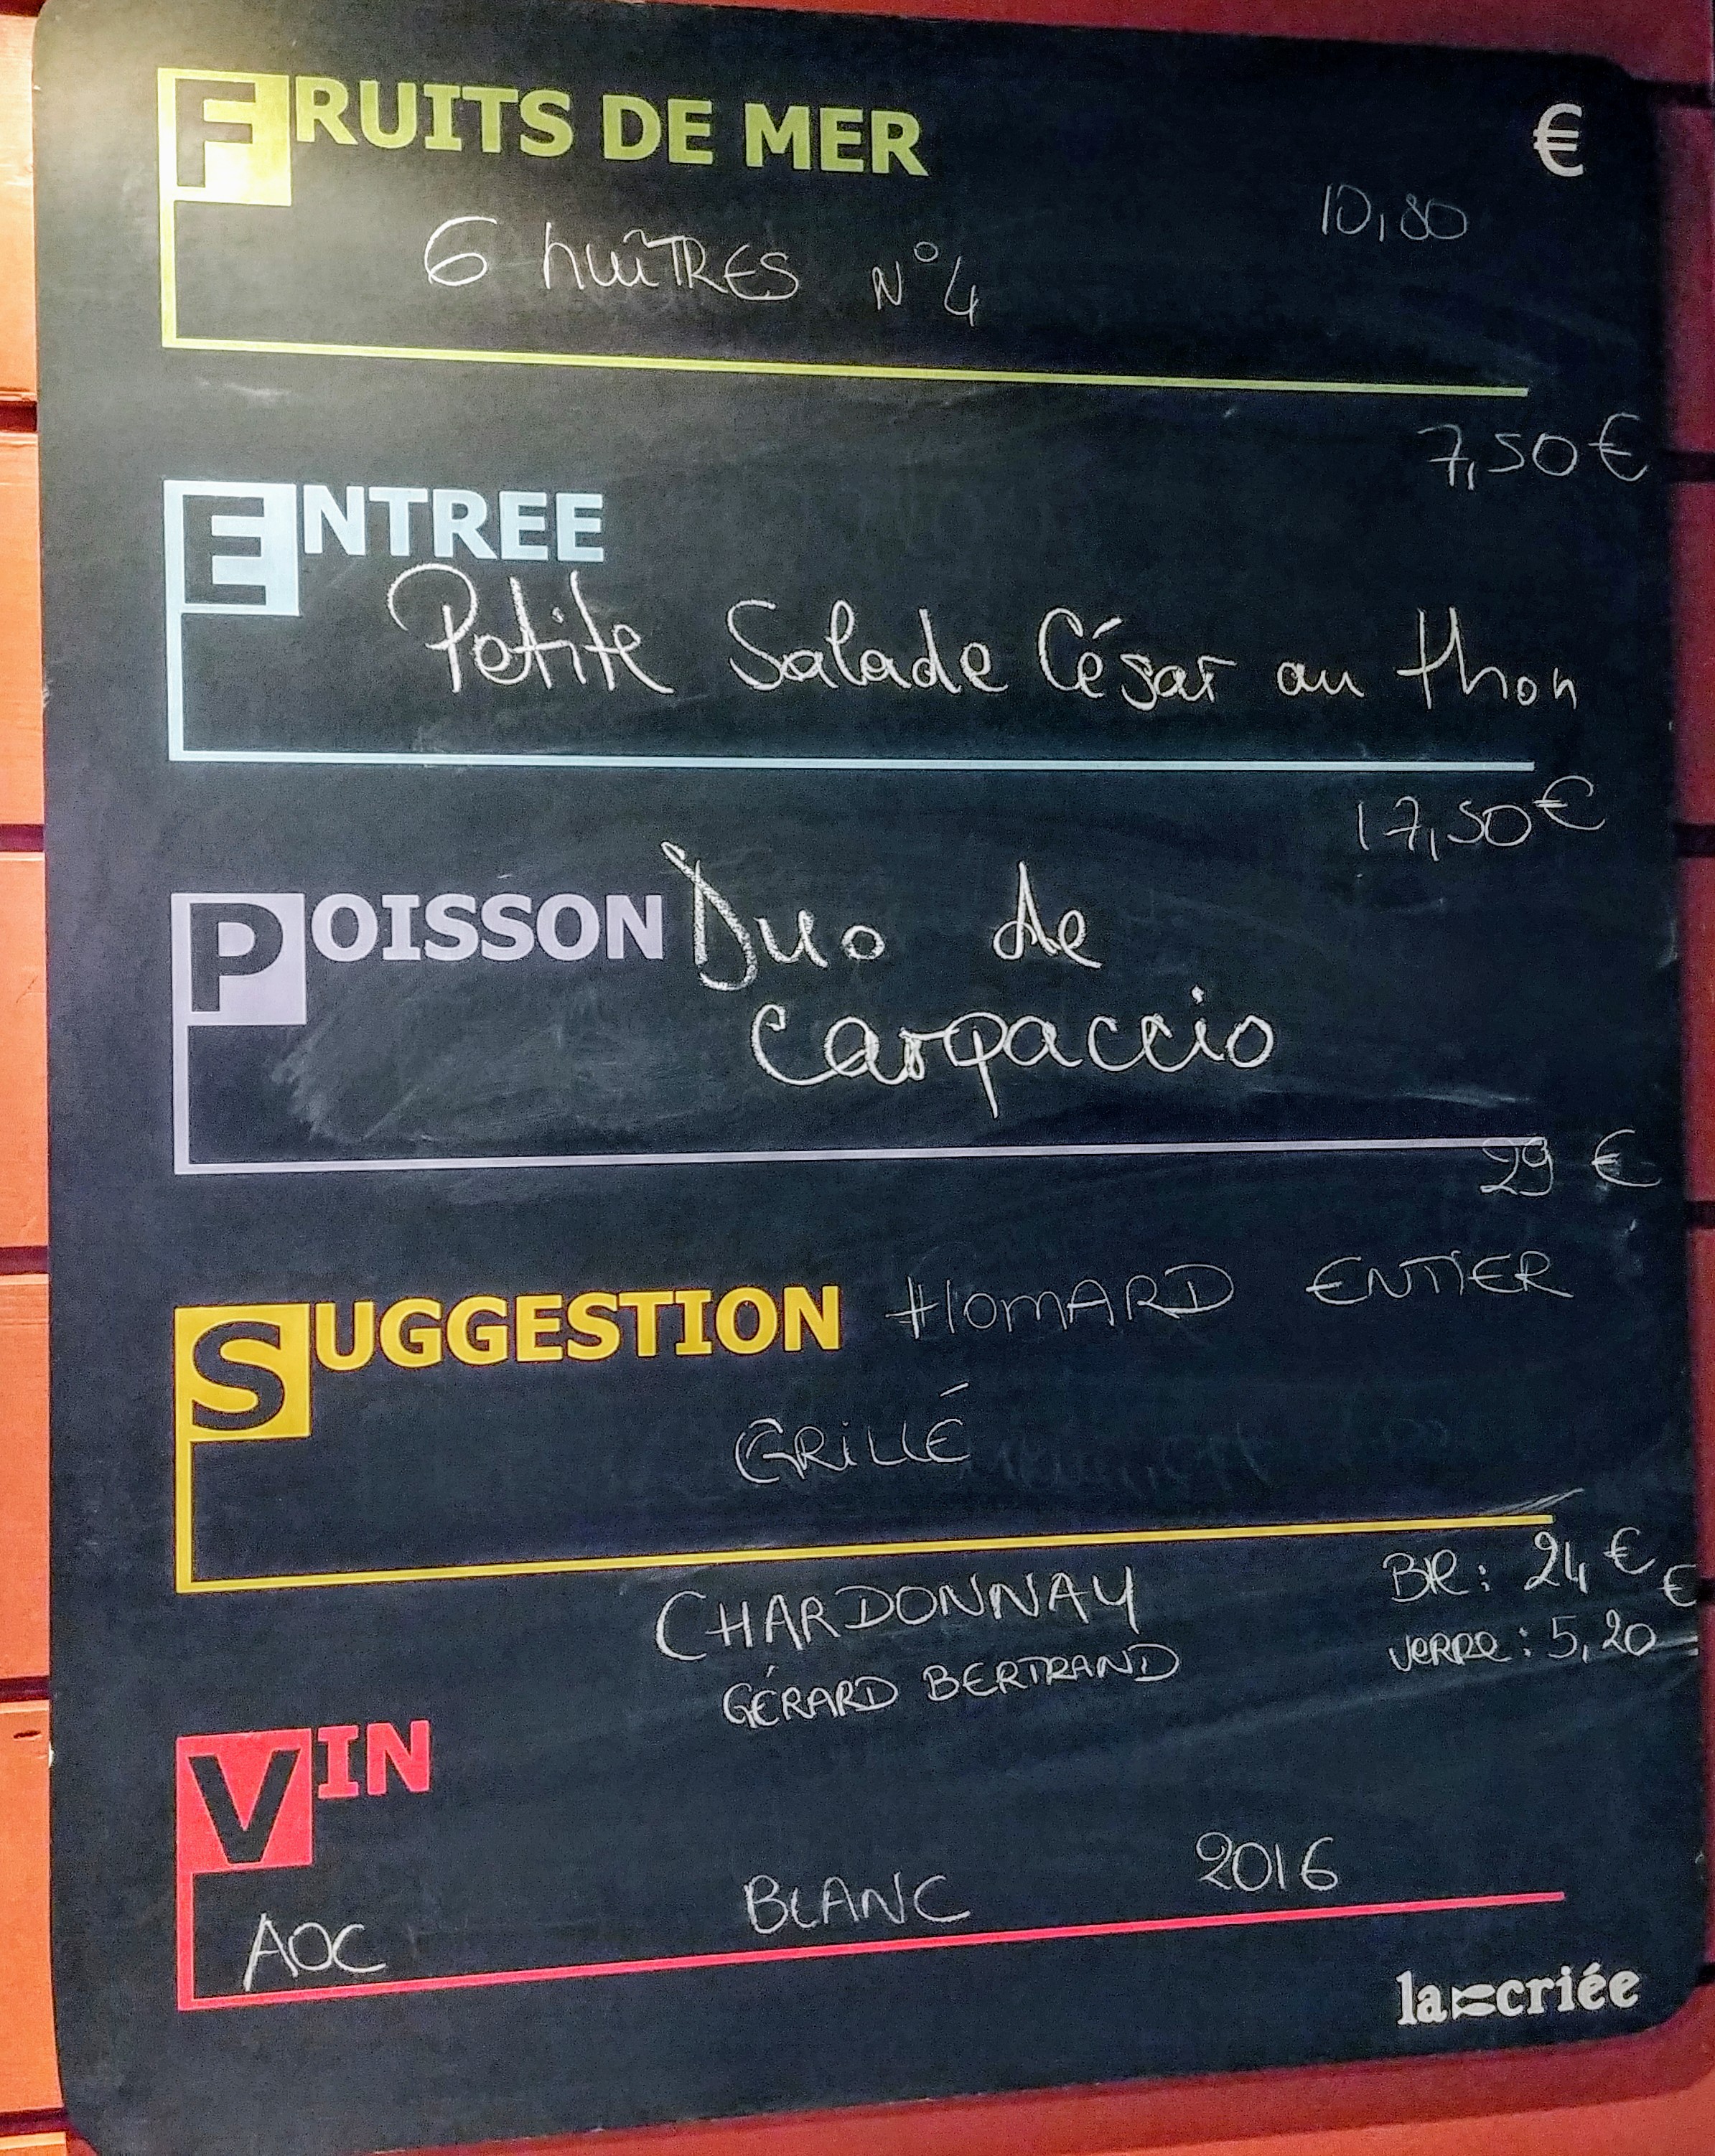 FRUITS DE MER €
10,80
6 huîTRES N°4
7,50€
ENTREE
Petite Salade César au thon
17,50€
POISSON Duo de
Carpaccio
29 €
SUGGESTION HOMARD ENTIER
GRILLÉ
CHARDONNAY BR: 24 €
GÉRARD BERTRAND VERRE: 5,20 €
VIN
AOC BLANC 2016
la criée